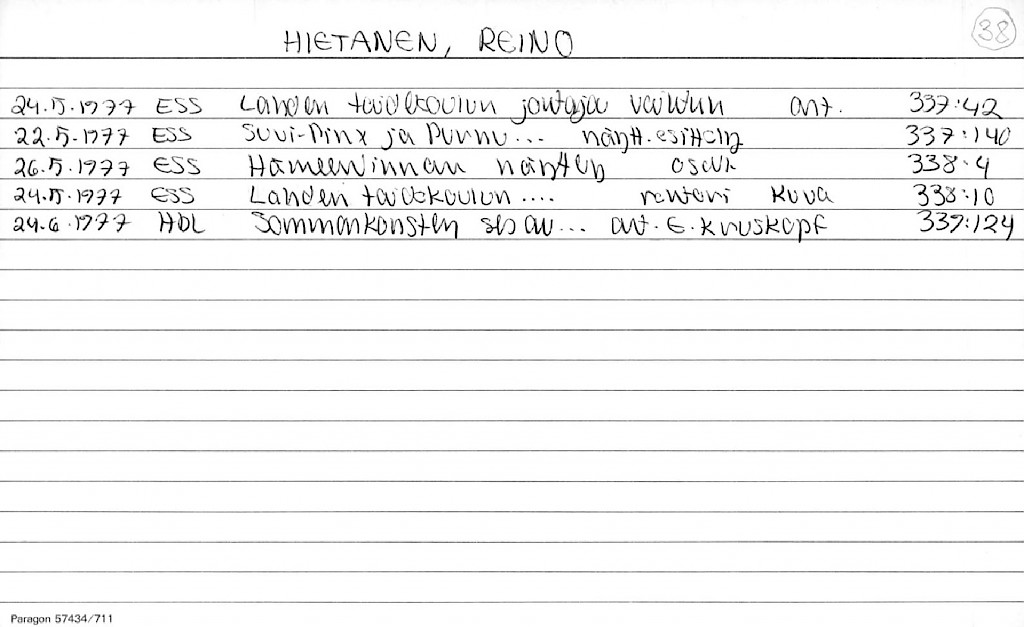 HIETANEN, REINO 38
24.5.1977 ESS Lahden taidekoulun johtaja vaihtuu art. 337:42
22.5.1977 ESS Suvi-Pinx ja Purnu... näytt.esittely 337:140
26.5.1977 ESS Hämeenlinnan näyttely osall. 338:4
24.5.1977 ESS Lahden taidekoulun .... rehtori kuva 338:10
24.6.1977 HBL Sommarkonsten ses av... art. E. Kruskopf 339:124
Paragon 57434/711